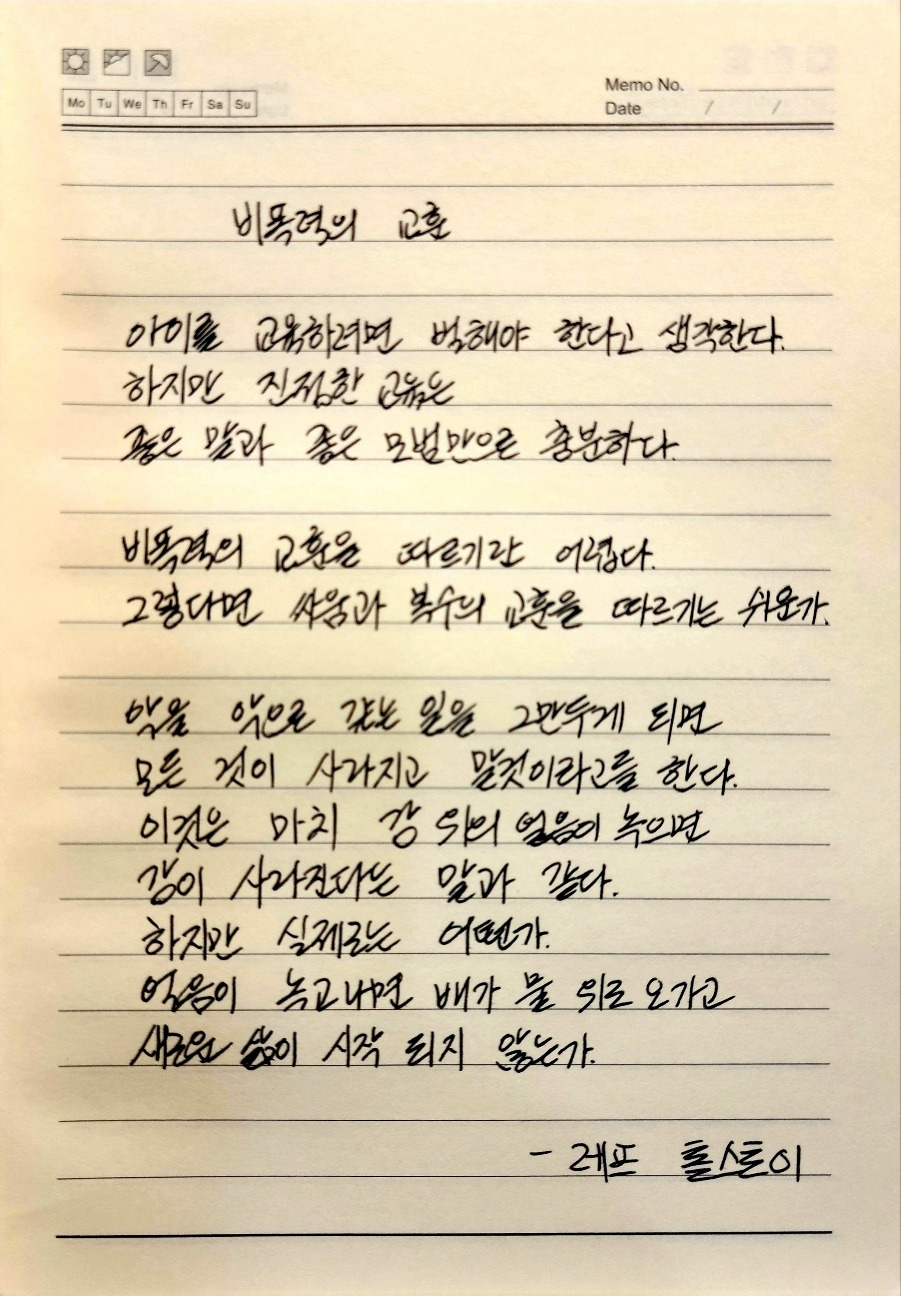 Memo No.
Mo Tu We Th Fr Sa Su
Date / /
비폭력의 교훈
아이를 교육하려면 벌해야 한다고 생각한다.
하지만 진정한 교육은
좋은 말과 좋은 모범만으로 충분하다.
비폭력의 교훈을 따르기란 어렵다.
그렇다면 싸움과 복수의 교훈을 따르기는 쉬운가.
악을 악으로 갚는 일을 그만두게 되면
모든 것이 사라지고 말것이라고들 한다.
이것은 마치 강 위의 얼음이 녹으면
강이 사라진다는 말과 같다.
하지만 실제로는 어떤가.
얼음이 녹고나면 배가 물 위로 오가고
새로운 삶이 시작 되지 않는가.
- 레프 톨스토이